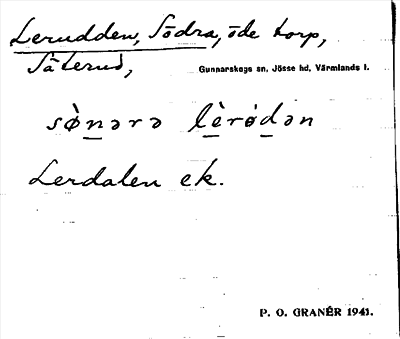 Lerudden, Södra, öde torp,
Säterud,
Gunnarskogs sn, Jösse hd, Värmlands l.
sø̀nərə lèrødən
Lerdalen ek.
P. O. GRANÉR 1941.